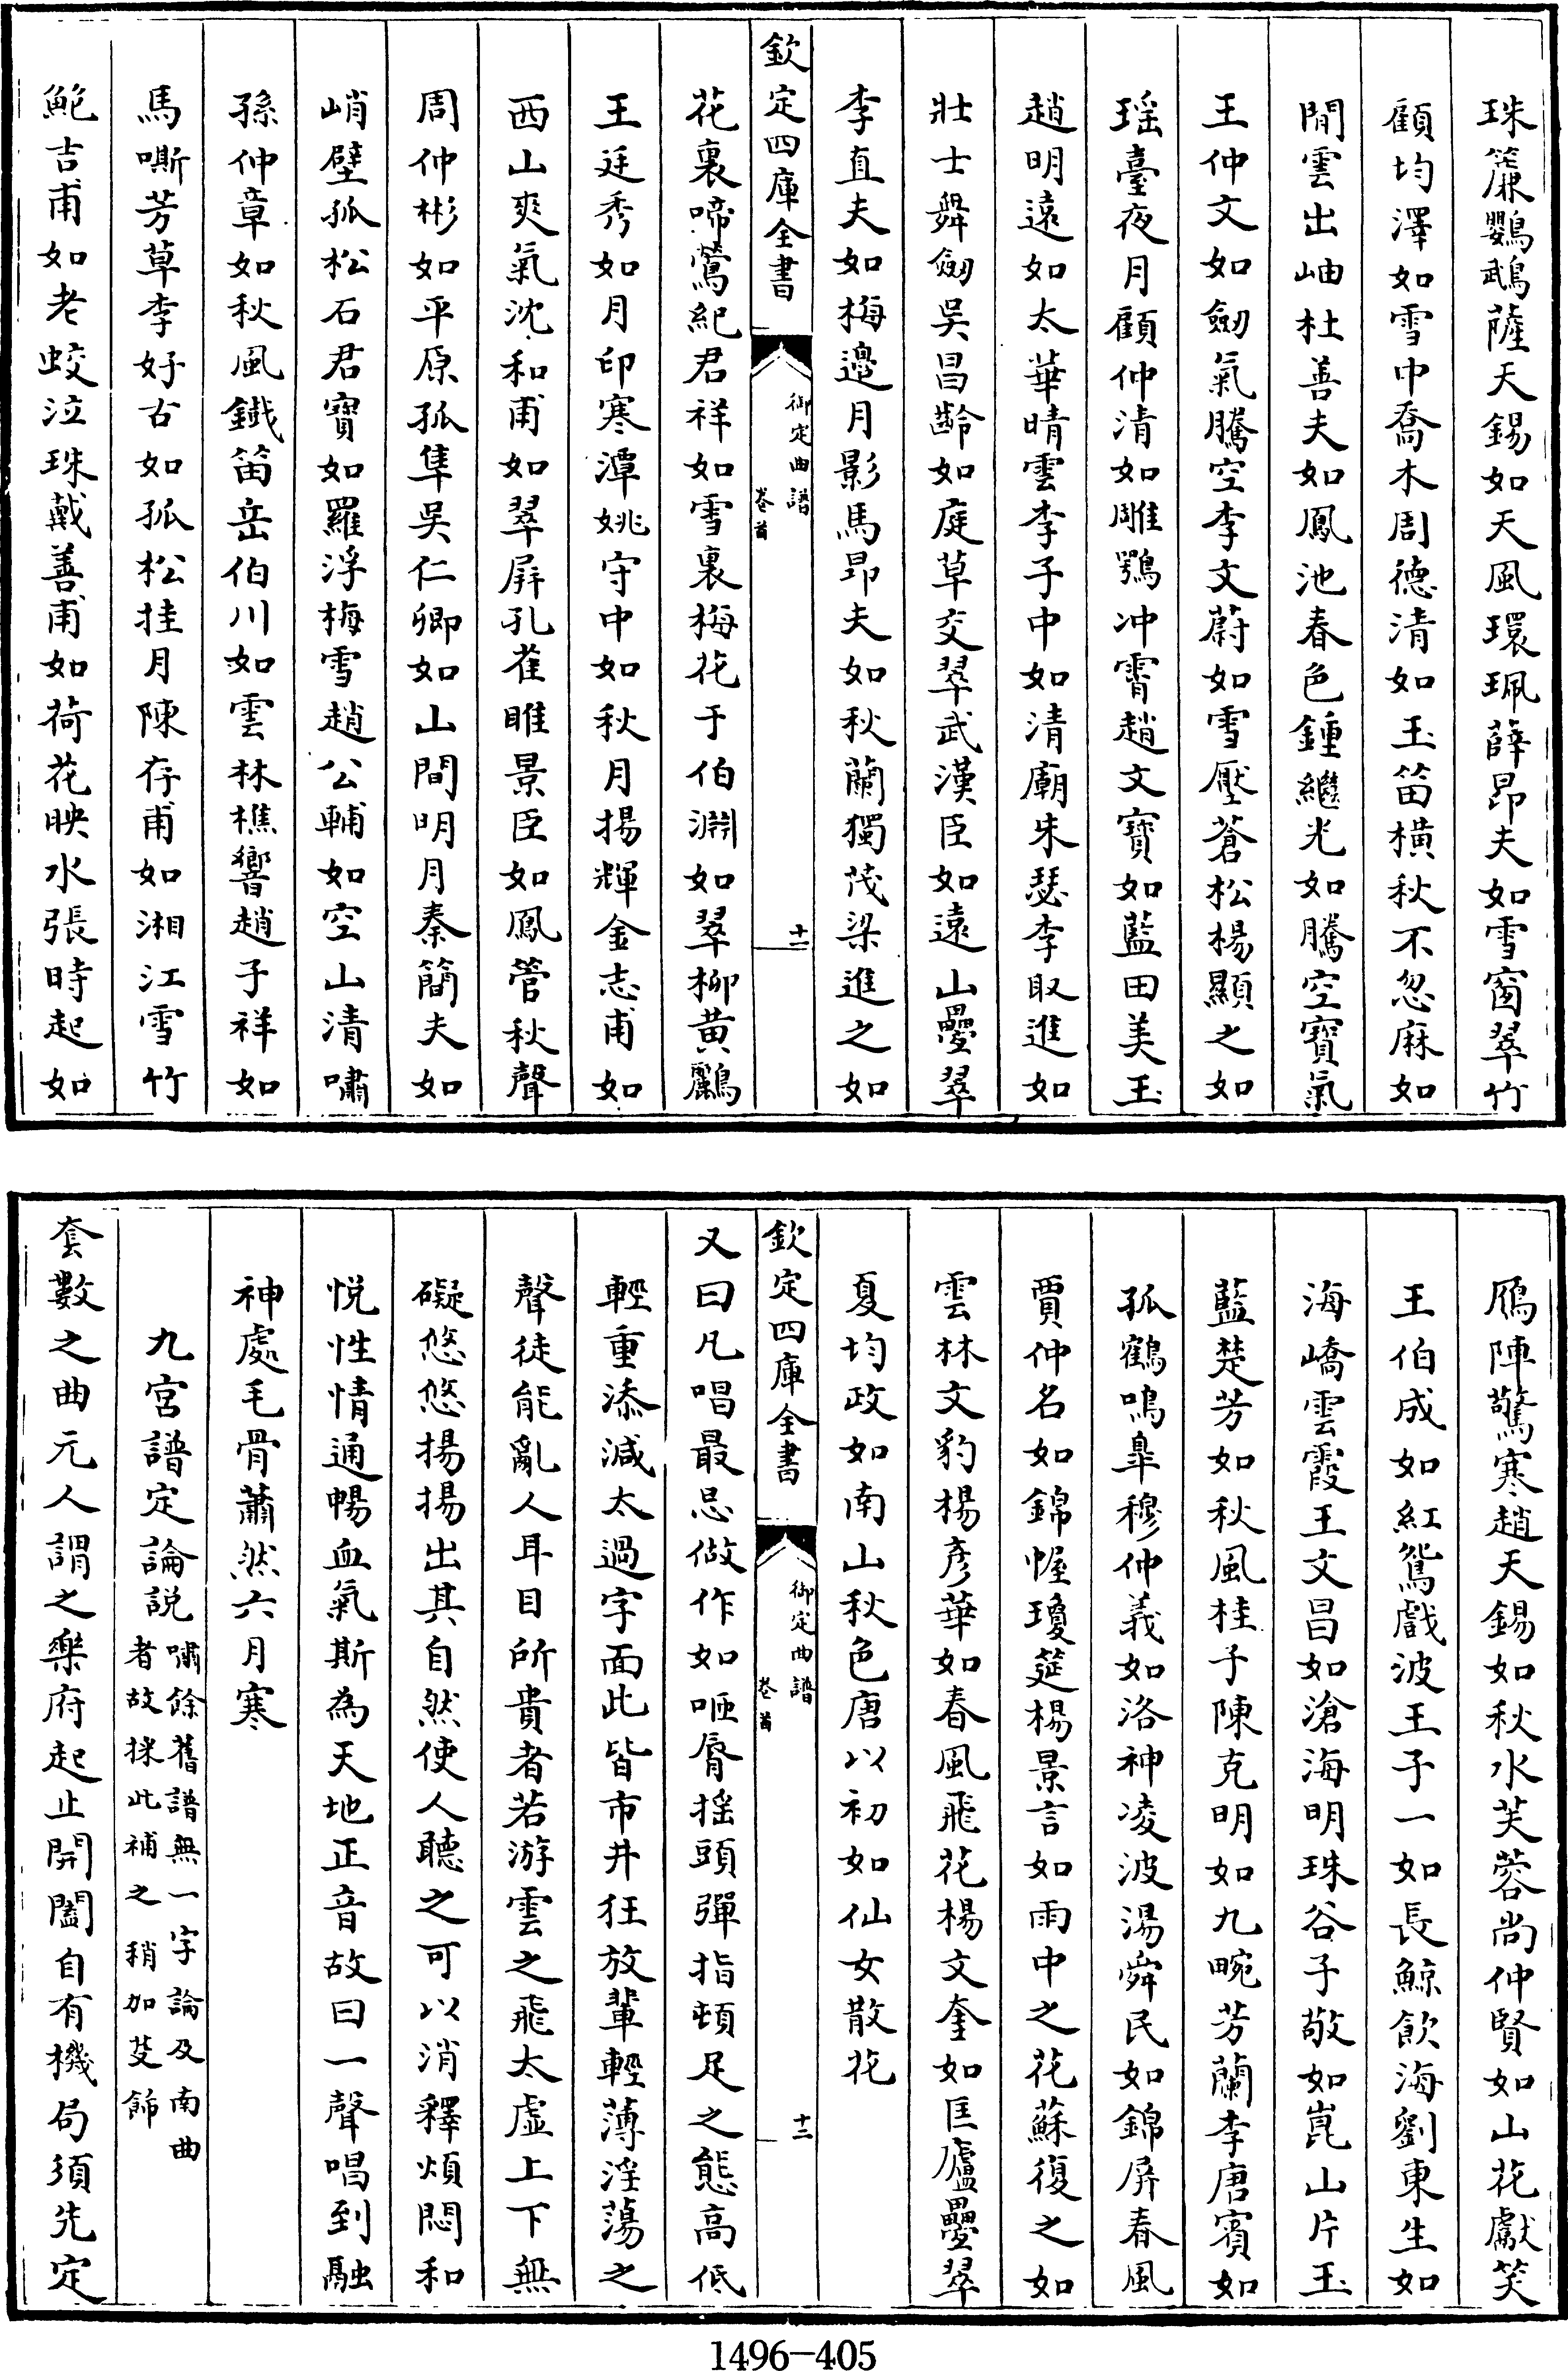 珠簾鸚鵡薩天錫如天風環珮薛昂夫如雪窗翠竹
顧均澤如雪中喬木周德清如玉笛橫秋不忽麻如
閒雲出岫杜善夫如鳳池春色鍾繼光如騰空寶氣
王仲文如劒氣騰空李文蔚如雪壓蒼松楊顯之如
瑶臺夜月顧仲清如雕鶚冲霄趙文寶如藍田美玉
趙明遠如太華晴雲李子中如清廟朱瑟李取進如
壯士舞劒吳昌齡如庭草交翠武漢臣如遠山疊翠
李直夫如梅邊月影馬昂夫如秋蘭獨茂梁進之如
欽定四庫全書
御定曲譜
卷首
十二
花裏啼鶯紀君祥如雪裏梅花于伯淵如翠柳黃鸝
王廷秀如月印寒潭姚守中如秋月揚輝金志甫如
西山爽氣沈和甫如翠屏孔雀睢景臣如鳳管秋聲
周仲彬如平原孤隼吳仁卿如山間明月秦簡夫如
峭壁孤松石君寶如羅浮梅雪趙公輔如空山清嘯
孫仲章如秋風鐵笛岳伯川如雲林樵響趙子祥如
馬嘶芳草李好古如孤松挂月陳存甫如湘江雪竹
鮑吉甫如老蛟泣珠戴善甫如荷花映水張時起如
鴈陣驚寒趙天錫如秋水芙蓉尚仲賢如山花獻笑
王伯成如紅鴛戲波王子一如長鯨飲海劉東生如
海嶠雲霞王文昌如滄海明珠谷子敬如崑山片玉
藍楚芳如秋風桂子陳克明如九畹芳蘭李唐賓如
孤鶴鳴臯穆仲義如洛神凌波湯舜民如錦屏春風
賈仲名如錦幄瓊筵楊景言如雨中之花蘇復之如
雲林文豹楊彥華如春風飛花楊文奎如匡廬疊翠
夏均政如南山秋色唐以初如仙女散花
欽定四庫全書
御定曲譜
卷首
十三
又曰凡唱最忌做作如咂脣摇頭彈指頓足之態高低
輕重添減太過字面此皆市井狂放輩輕薄淫蕩之
聲徒能亂人耳目所貴者若游雲之飛太虛上下無
礙悠悠揚揚出其自然使人聽之可以消釋煩悶和
悅性情通暢血氣斯為天地正音故曰一聲唱到融
神處毛骨蕭然六月寒
九宮譜定論説
嘯餘舊譜無一字論及南曲
者故採此補之稍加芟飾
套數之曲元人謂之樂府起止開闔自有機局須先定
1496-405